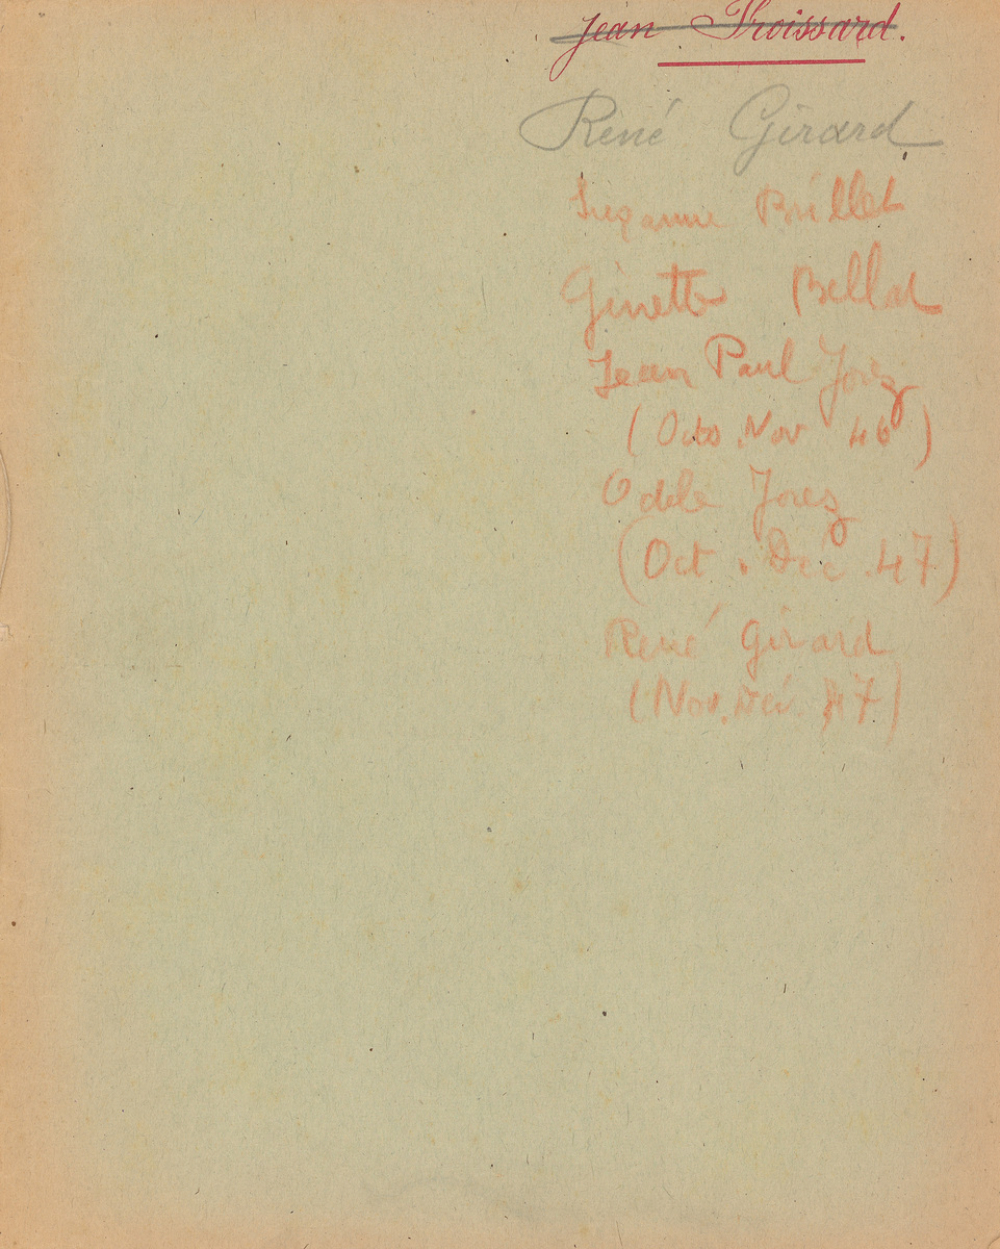 Jean Froissard.
René Girard
Suzanne Brillet
Ginette Bellat
Jean Paul Jorez
(Octo Nov 46)
Odile Jorez
(Oct. Déc. 47)
René Girard
(Nov. Déc. 47)